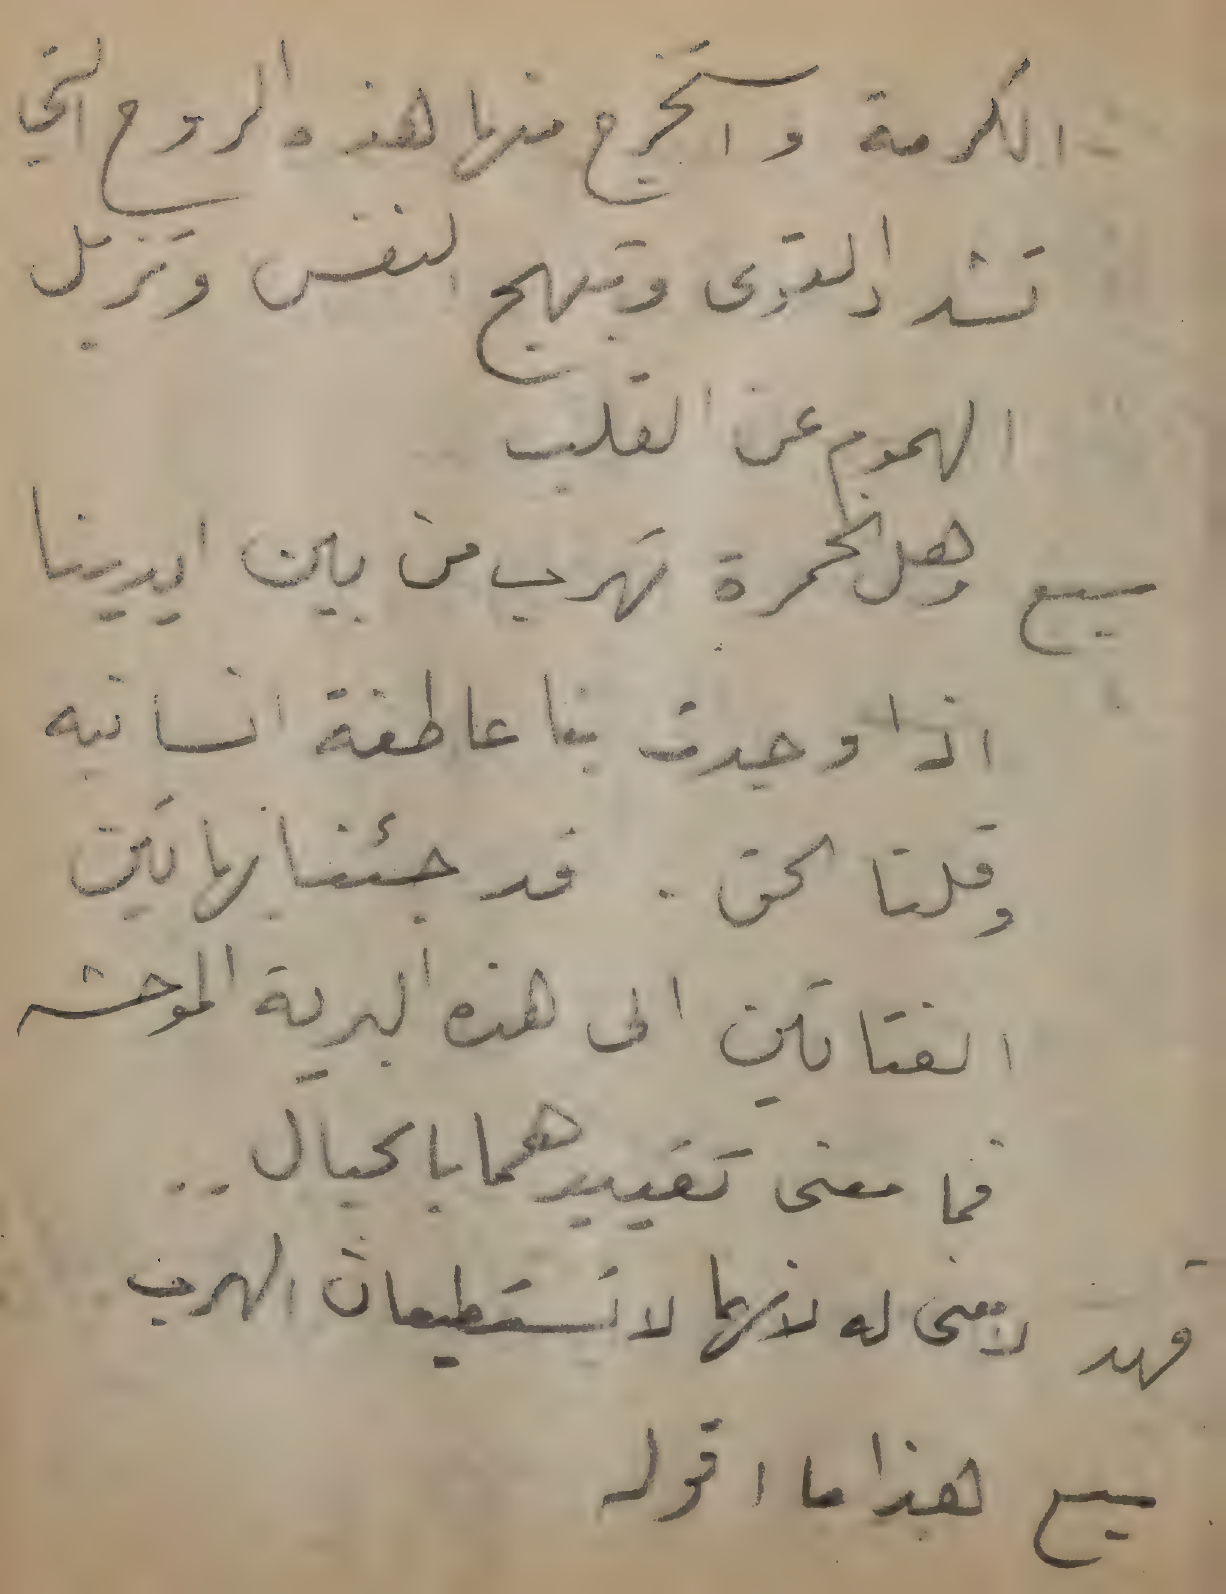 الكرمة واستخرج منها هذه الروح التي
تشد القوى وتبهج النفس وتزيل
الهموم عن القلب
سبع وهل الخمرة تهرب من بين ايدينا
اذا وجدت بنا عاطفة انسانيه
وقلنا الحق . قد جئنا بهاتين
الفتاتين الى هذه البرية الموحشه
فما معنى تقييدهما بالحبال ..
فهد لا معنى له لانهما لا تستطيعان الهرب
سبع هذا ما اقوله